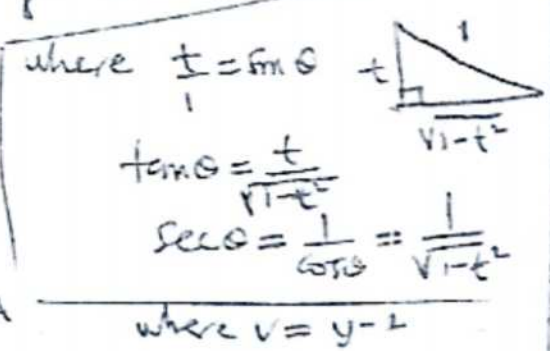 where t/1 = sin θ
t
1
√1-t²
tan θ = t/√1-t²
sec θ = 1/cos θ = 1/√1-t²
where v = y-2